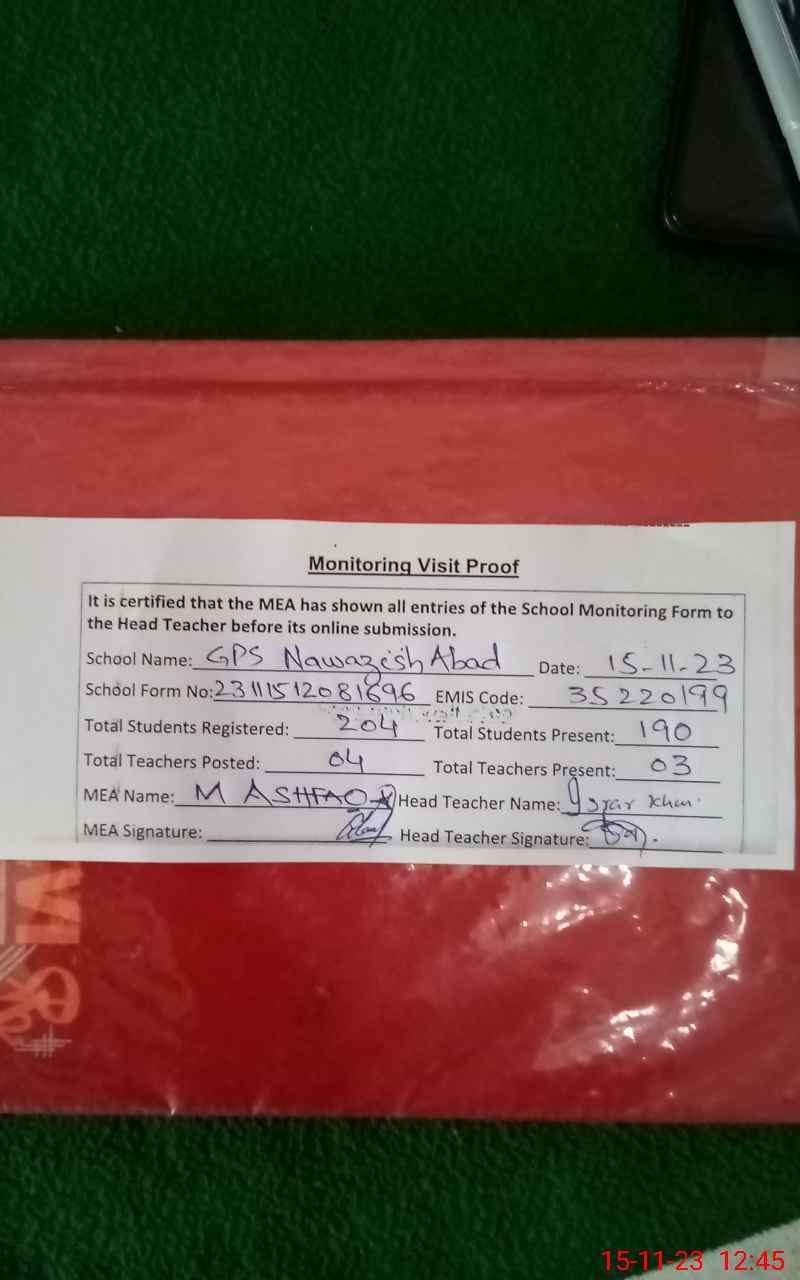 Monitoring Visit Proof
It is certified that the MEA has shown all entries of the School Monitoring Form to
the Head Teacher before its online submission.
School Name: GPS Nawazish Abad Date: 15-11-23
School Form No: 23111512081696 EMIS Code: 35220199
Total Students Registered: 204 Total Students Present: 190
Total Teachers Posted: 04 Total Teachers Present: 03
MEA Name: M ASHFAQ Head Teacher Name: Khan
MEA Signature: Head Teacher Signature:
15-11-23 12:45